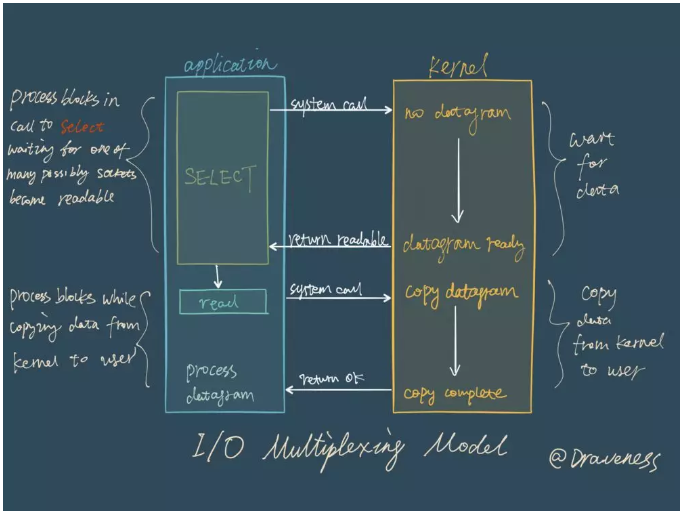 application
Kernel
process blocks in
call to select
waiting for one of
many possibly sockets
become readable
SELECT
system call
no datagram
wait
for
data
return readable
datagram ready
process blocks while
copying data from
kernel to user
read
system call
copy datagram
copy
data
from kernel
to user
process
datagram
return OK
copy complete
I/O Multiplexing Model
@Draveness